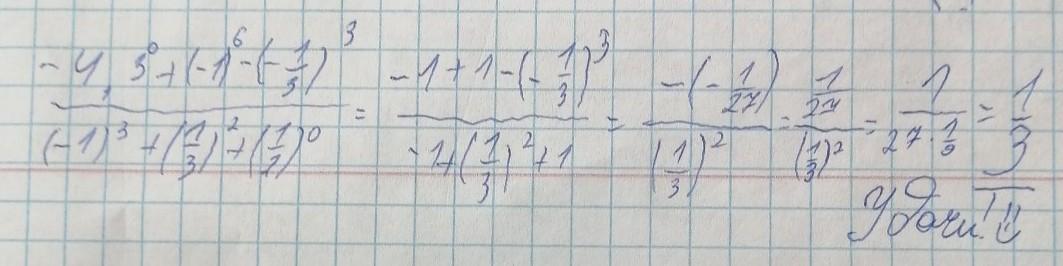 \frac{-4,3^0+(-1)^6-(-\frac{1}{3})^3}{(-1)^3+(\frac{1}{3})^2+(\frac{1}{7})^0} = \frac{-1+1-(-\frac{1}{3})^3}{-1+(\frac{1}{3})^2+1} = \frac{-(-\frac{1}{27})}{(\frac{1}{3})^2} = \frac{\frac{1}{27}}{(\frac{1}{3})^2} = \frac{1}{27 \cdot \frac{1}{9}} = \frac{1}{3}
Удачи!